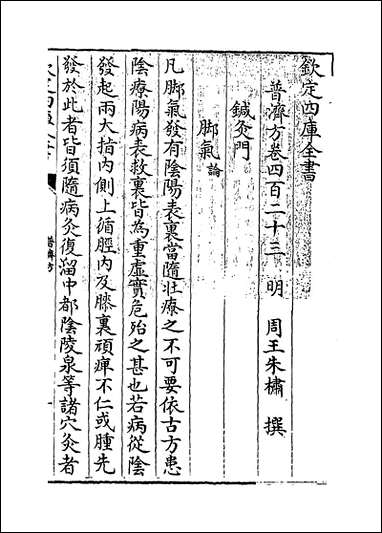 欽定四庫全書
普濟方卷四百二十三　明　周王朱橚　撰
鍼灸門
脚氣論
凡脚氣發有陰陽表裏當隨壯療之不可要依古方患
陰療陽病表救裏皆為重虛實危殆之甚也若病從陰
發起兩大指內側上循脛內及膝裏頑痺不仁或腫先
發於此者皆須隨病灸復溜中都陰陵泉等諸穴灸者
普濟方
一